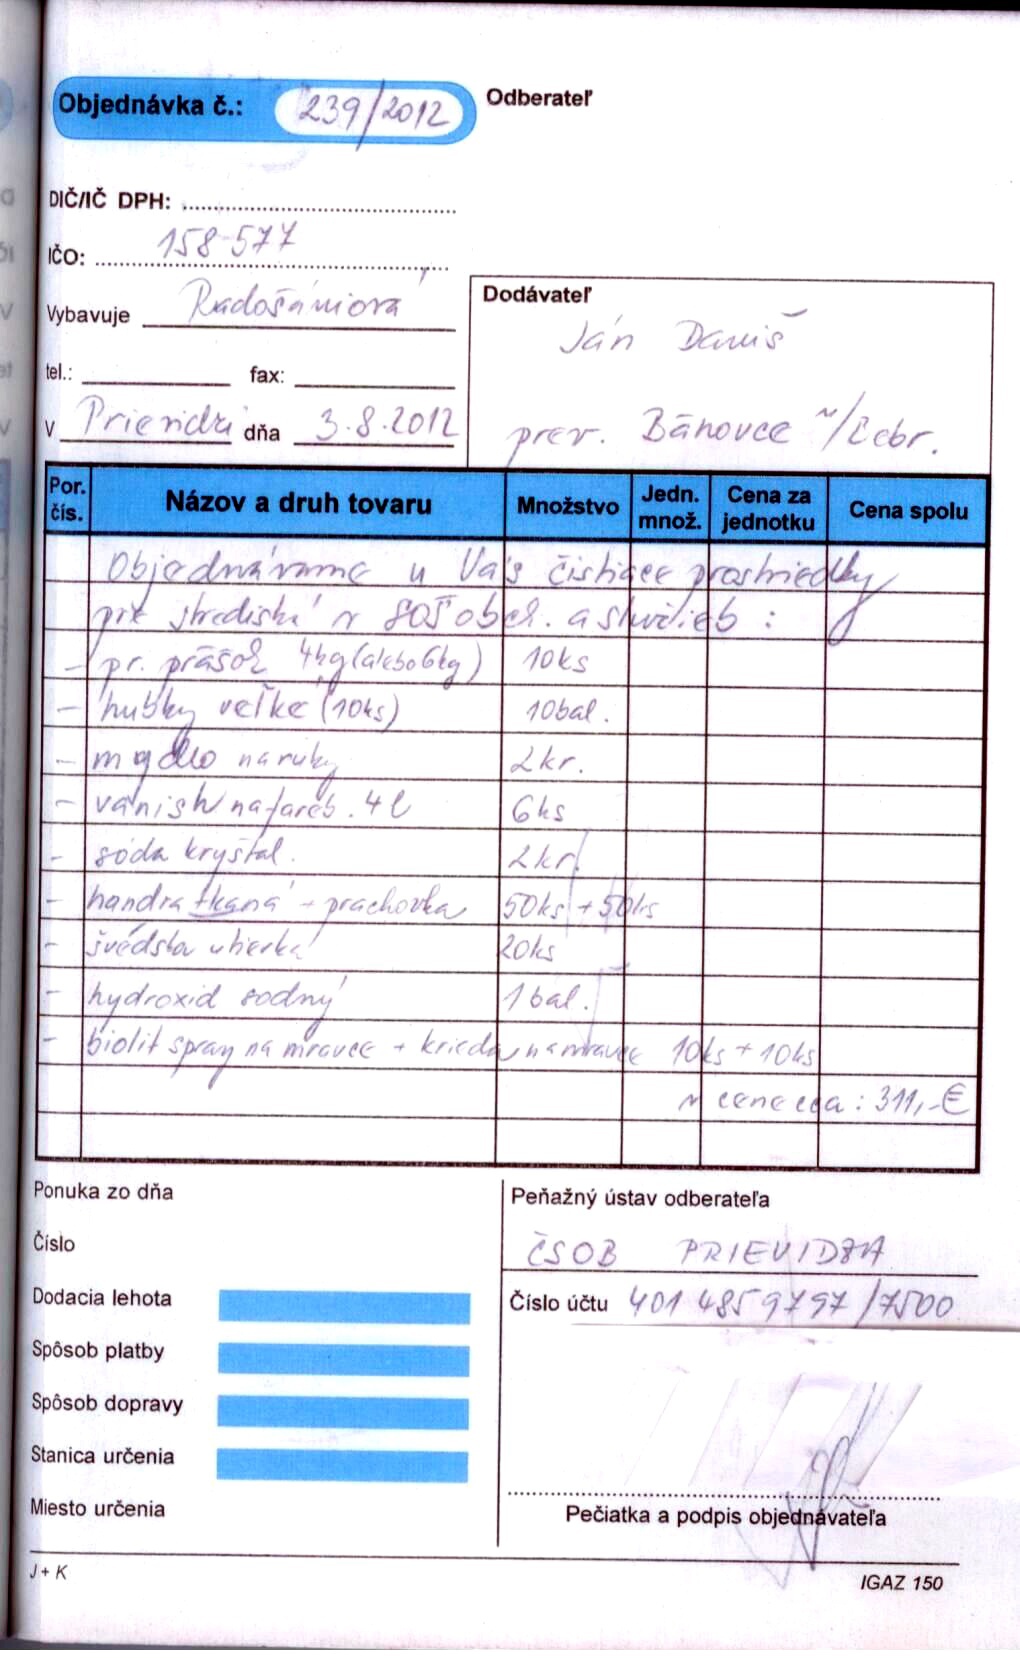 Objednávka č.: 239/2012
Odberateľ
DIČ/IČ DPH:
IČO: 158 577
Vybavuje Radošániová
tel.: fax:
V Prievidzi dňa 3.8.2012
Dodávateľ
Ján Daniš
prev. Bánovce n/Bebr.
Por. čís. Názov a druh tovaru Množstvo Jedn. množ. Cena za jednotku Cena spolu
Objednávame u Vás čistiace prostriedky
pre strediská v SOŠ obch. a služieb :
- pr. prášok 4kg (alebo 6kg) 10ks
- hubky veľké (10ks) 10bal.
- mydlo na ruky 2kr.
- vanish na fareb. 4l 6ks
- sóda kryštal. 2kr.
- handra tkaná + prachovka 50ks + 50ks
- švédska utierka 20ks
- hydroxid sodný 1bal.
- biolit spray na mravce + krieda na mravce 10ks + 10ks
v cene cca : 311,-€
Ponuka zo dňa
Číslo
Dodacia lehota
Spôsob platby
Spôsob dopravy
Stanica určenia
Miesto určenia
Peňažný ústav odberateľa
ČSOB PRIEVIDZA
Číslo účtu 401 485 9797 /7500
Pečiatka a podpis objednávateľa
J + K
IGAZ 150